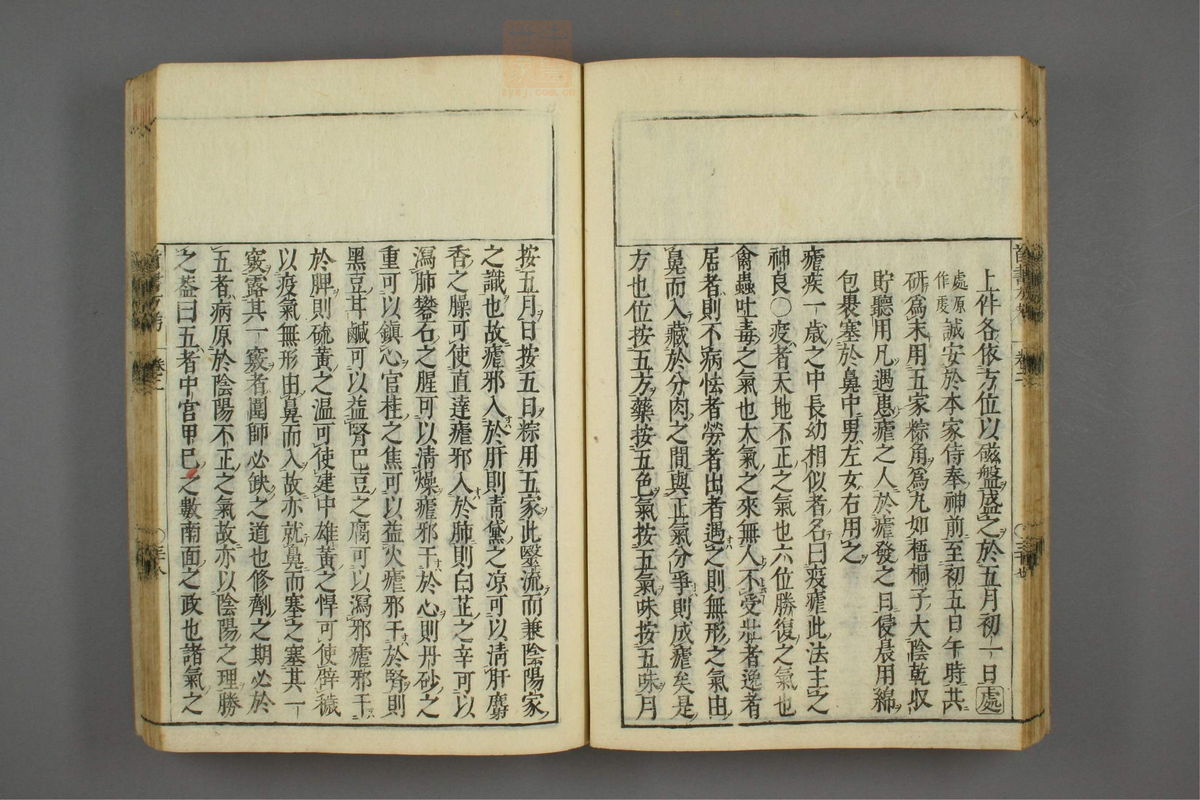 上件各依方位以磁盤盛之於五月初一日處
處原作度誠安於本家侍奉神前至初五日午時共
研爲末用五家粽角爲丸如梧桐子大陰乾収
貯聽用凡遇患瘧之人於瘧發之日侵晨用綿
包裹塞於鼻中男左女右用之
瘧疾一歳之中長幼相似者名曰疫瘧此法主之
神良○疫者天地不正之氣也六位勝復之氣也
禽蟲吐毒之氣也大氣之來無人不受壯者逸者
居者則不病怯者勞者出者遇之則無形之氣由
鼻而入藏於分肉之間與正氣分爭則成瘧矣是
方也位按五方藥按五色氣按五氣味按五味月
按五月日按五日粽用五家此醫流而兼陰陽家
之識也故瘧邪入於肝則青黛之凉可以淸肝麝
香之臊可使直達瘧邪入於肺則白芷之辛可以
瀉肺礬石之腥可以淸燥瘧邪干於心則丹砂之
重可以鎭心官桂之焦可以益火瘧邪干於腎則
黑豆甘鹹可以益腎巴豆之腐可以瀉邪瘧邪干
於脾則硫黃之温可使建中雄黃之悍可使辟穢
以疫氣無形由鼻而入故亦就鼻而塞之塞其一
竅露其一竅者圍師必缺之道也修劑之期必於
五者病原於陰陽不正之氣故亦以陰陽之理勝
之葢曰五者中宮甲巳之數南面之政也諸氣之
卷之二
卷之二